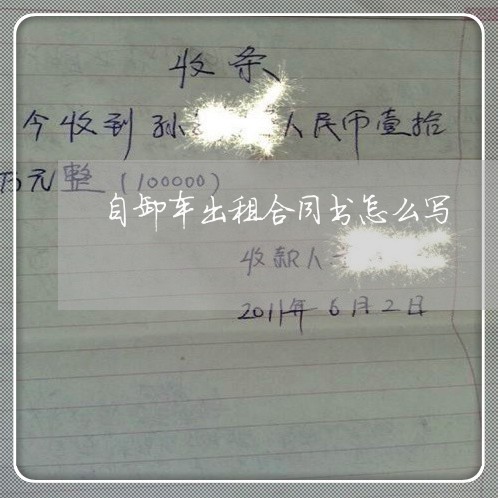 收条
今收到孙 人民币壹拾
万元整(100000)
自卸车出租合同书怎么写
收款人
2011年6月2日